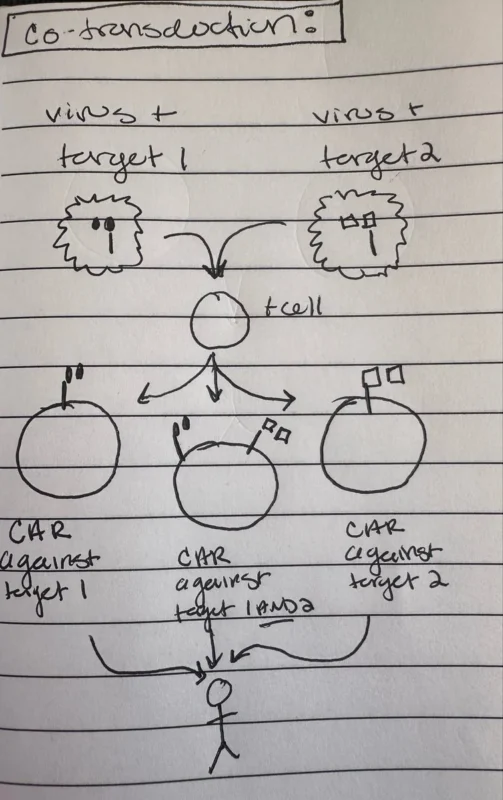 co-transduction:
virus +
target 1
virus +
target 2
t cell
CAR
against
target 1
CAR
against
target 1 AND 2
CAR
against
target 2